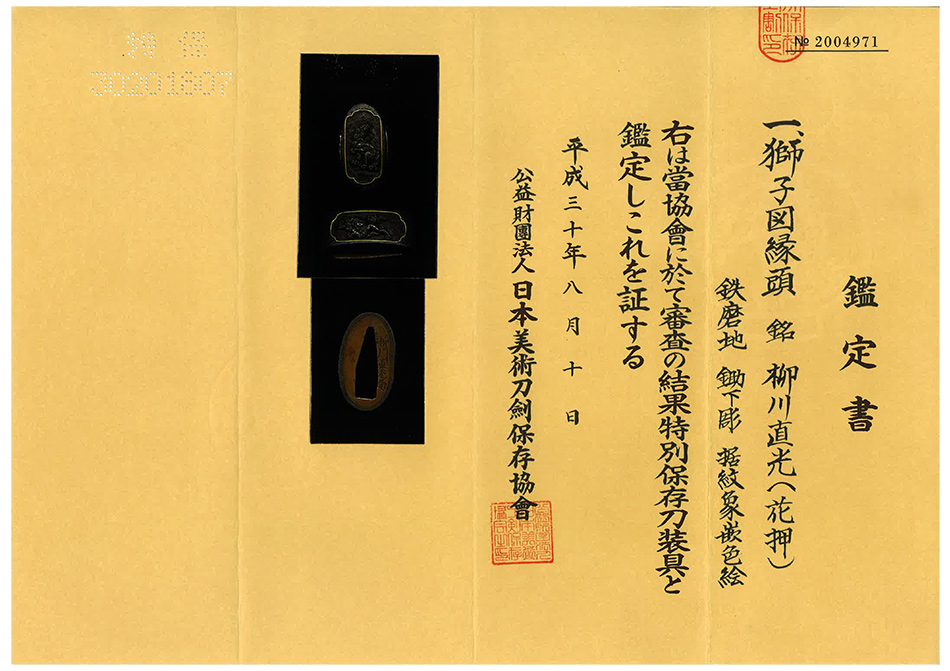 № 2004971
鑑定書
一、獅子図縁頭 銘 柳川直光(花押)
鉄磨地 鋤下彫 据紋象嵌色絵
右は當協會に於て審査の結果特別保存刀装具と
鑑定しこれを証する
平成三十年八月十日
公益財團法人 日本美術刀劍保存協會
特保
30201807